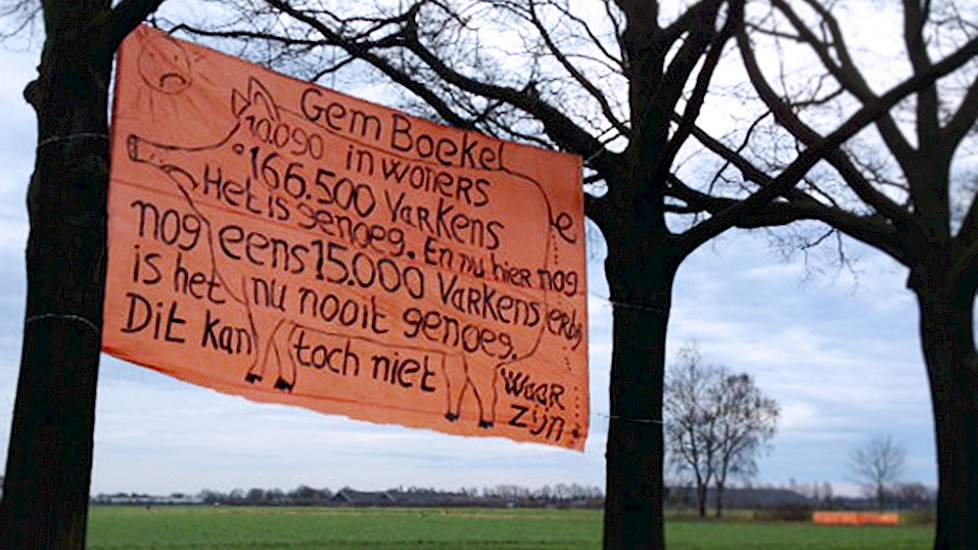 Gem Boekel
10.090 inwoners
166.500 varkens
Het is genoeg. En nu hier nog
nog eens 15.000 varkens erbij
is het nu nooit genoeg.
Dit kan toch niet waar
zijn